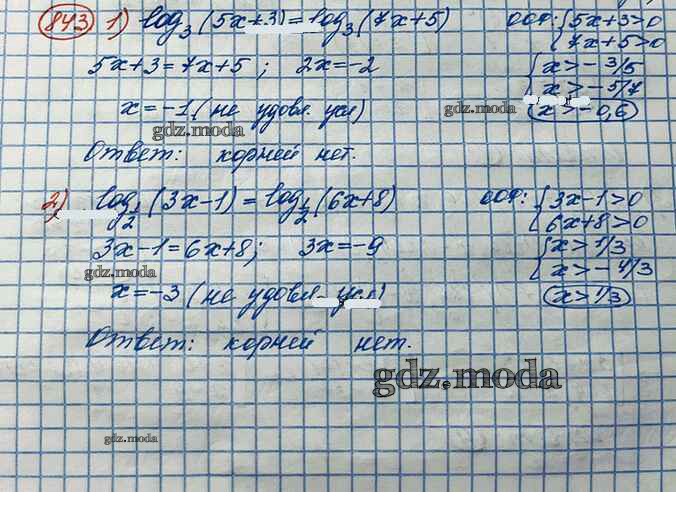 843 1) log₃(5x+3)=log₃(7x+5) ООФ: {5x+3>0
7x+5>0
5x+3=7x+5; 2x=-2 {x>-3/5
x>-5/7
x=-1 (не удовл. усл) x>-0,6
gdz.moda gdz.moda
Ответ: корней нет.
2) log₁/₂(3x-1)=log₁/₂(6x+8) ООФ: {3x-1>0
6x+8>0
3x-1=6x+8; 3x=-9 {x>1/3
gdz.moda x>-4/3
x=-3 (не удовл. усл) x>1/3
Ответ: корней нет.
gdz.moda
gdz.moda